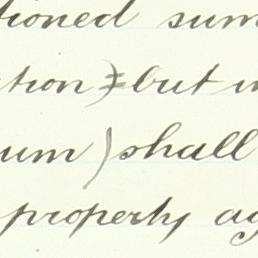 tioned sum
tion) but
um) shall
property ag